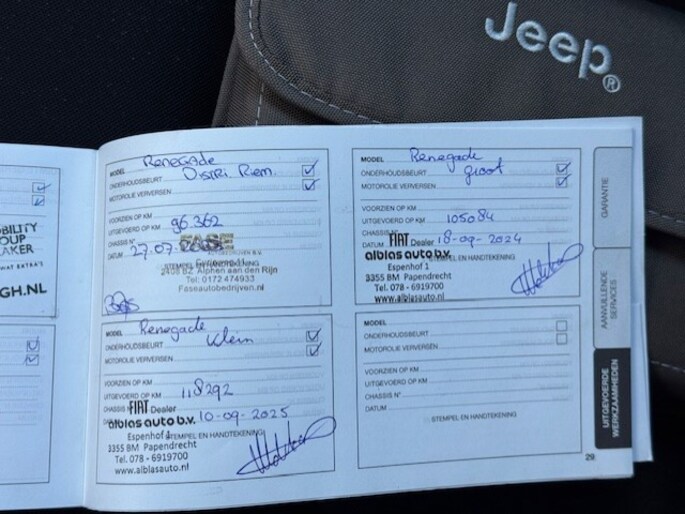 Jeep®
BILITY
OUP
AKER
WAT EXTRA'S
GH.NL
MODEL Renegade
ONDERHOUDSBEURT Distri Riem.
MOTOROLIE VERVERSEN
VOORZIEN OP KM
UITGEVOERD OP KM 96.362
CHASSIS N°
DATUM 27.07.
FASE
AUTOBEDRIJVEN B.V.
STEMPEL EN HANDTEKENING
2408 BZ Alphen aan den Rijn
Tel: 0172 474933
Faseautobedrijven.nl
MODEL Renegade
ONDERHOUDSBEURT groot
MOTOROLIE VERVERSEN
VOORZIEN OP KM
UITGEVOERD OP KM 105084
CHASSIS N°
DATUM FIAT Dealer 18-09-2024
alblas auto b.v.
Espenhof 1 STEMPEL EN HANDTEKENING
3355 BM Papendrecht
Tel. 078 - 6919700
www.alblasauto.nl
MODEL Renegade
ONDERHOUDSBEURT Klein
MOTOROLIE VERVERSEN
VOORZIEN OP KM
UITGEVOERD OP KM 118292
CHASSIS N° FIAT Dealer
DATUM alblas auto b.v. 10-09-2025
Espenhof 1 STEMPEL EN HANDTEKENING
3355 BM Papendrecht
Tel. 078 - 6919700
www.alblasauto.nl
MODEL
ONDERHOUDSBEURT
MOTOROLIE VERVERSEN
VOORZIEN OP KM
UITGEVOERD OP KM
CHASSIS N°
DATUM
STEMPEL EN HANDTEKENING
29
GARANTIE
AANVULLENDE
SERVICES
UITGEVOERDE
WERKZAAMHEDEN